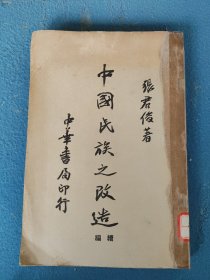 張君俊著
中國民族之改造
續編
中華書局印行